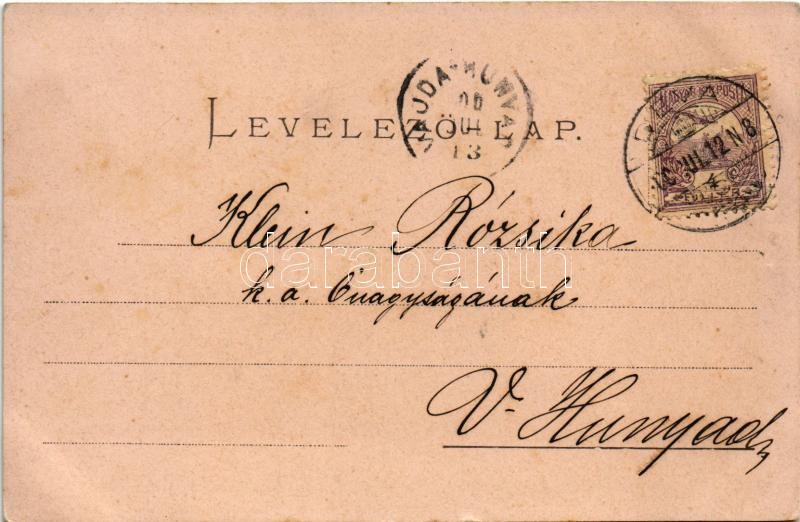 LEVELEZŐ-LAP.
VAJDA-HUNYAD
00 JUL 13
MAGYAR KIR. POSTA
JUL. 12 N. 8
4
Klein Rózsika
k. a. Önagyságának
darabanth
V-Hunyad